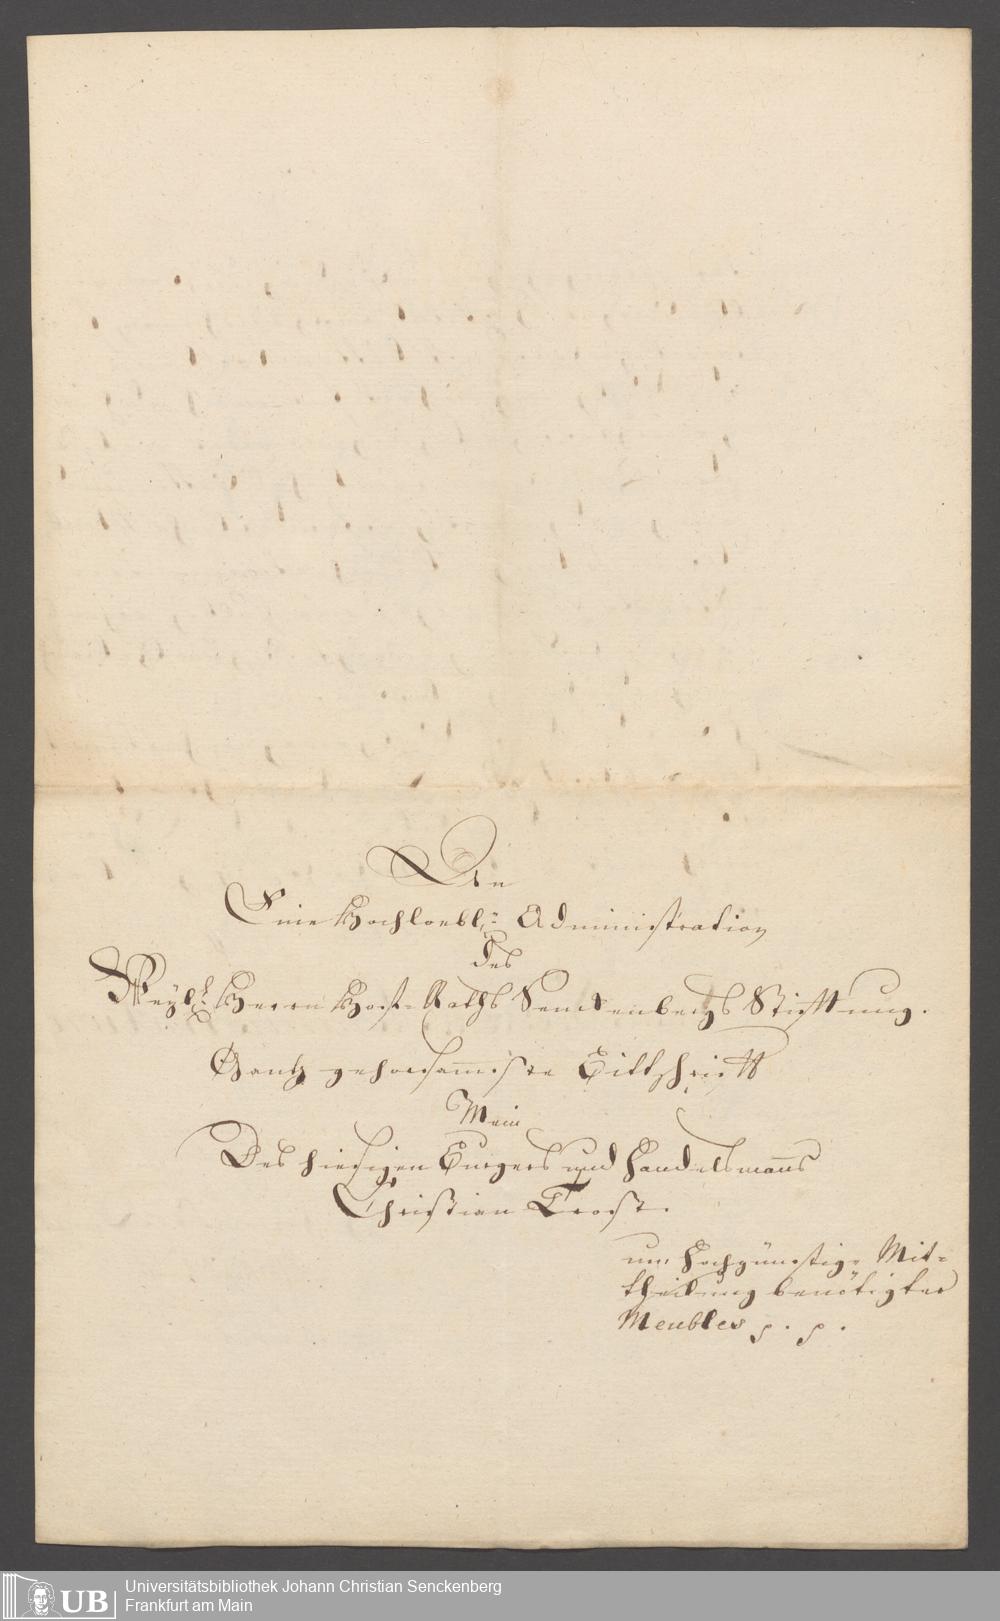 An
Eine Hochloebl: Administration
des
Weyl. Herrn Hoff-Raths Senckenbergs Stifftung.
Gantz gehorsamste Bittschrifft
Mein
Des hiesigen Burgers und Handelsmanns
Christian Trost.
um hochgünstige Mit=
theilung benötigter
Meubles p. p.
UB
Universitätsbibliothek Johann Christian Senckenberg
Frankfurt am Main